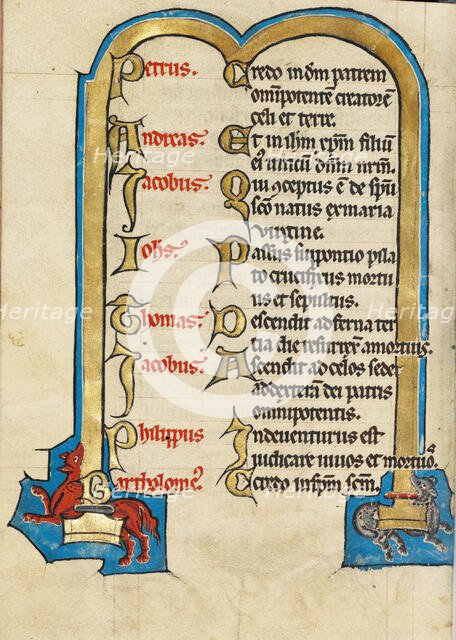 Petrus. Credo in dm̄ patrem
om̄ipotentē creatorē
celi et terre.
Andreas. Et in ihm̄ xp̄m filiū
eiꝰ unicū dn̄m nr̄m.
Jacobus. Qui ꝯceptus ē de sp̄u
sc̄o natus ex maria
virgine.
Johs̄. Passus sub pontio pyla
to crucifixus mortu
us et sepultus.
Thomas. Descendit ad inferna ter
tia die resurrexit a mortuis.
Jacobus. Ascendit ad celos sedet
ad dexterā dei patris
omnipotentis.
Philippus Inde venturus est
judicare vivos et mortuos
Bartholomeꝰ. Credo in sp̄m sc̄m.
Heritage
Images